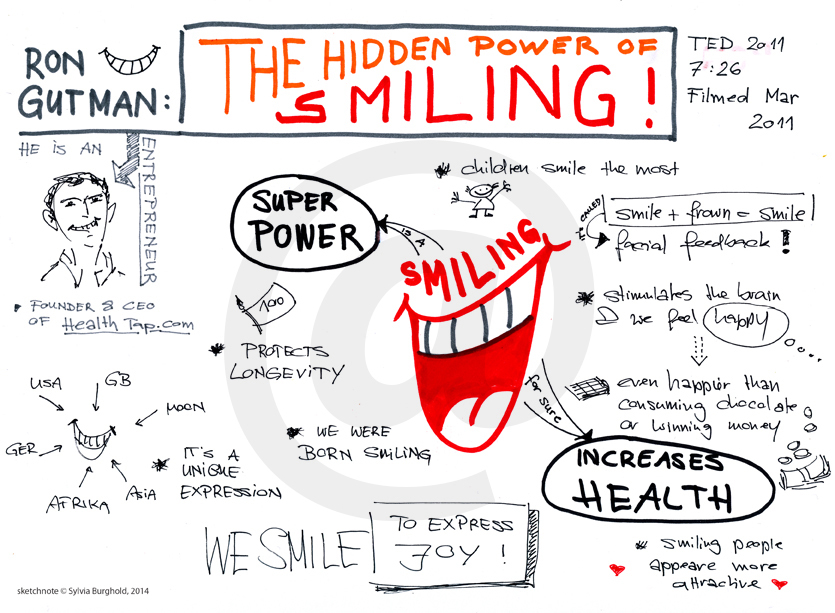 RON
GUTMAN:
THE HIDDEN POWER OF
SMILING!
TED 2011
7:26
Filmed Mar
2011
HE IS AN
ENTREPRENEUR
FOUNDER & CEO
OF HealthTap.com
SUPER
POWER
IS A
SMILING
* children smile the most
CALLED
smile + frown = smile
facial feedback!
* stimulates the brain
we feel happy
even happier than
consuming chocolate
or winning money
100
* PROTECTS
LONGEVITY
USA
GB
MOON
GER
AFRIKA
ASIA
* IT'S A
UNIQUE
EXPRESSION
* WE WERE
BORN SMILING
for sure
INCREASES
HEALTH
WE SMILE
TO EXPRESS
JOY!
* smiling people
appeare more
attractive
@
sketchnote © Sylvia Burghold, 2014